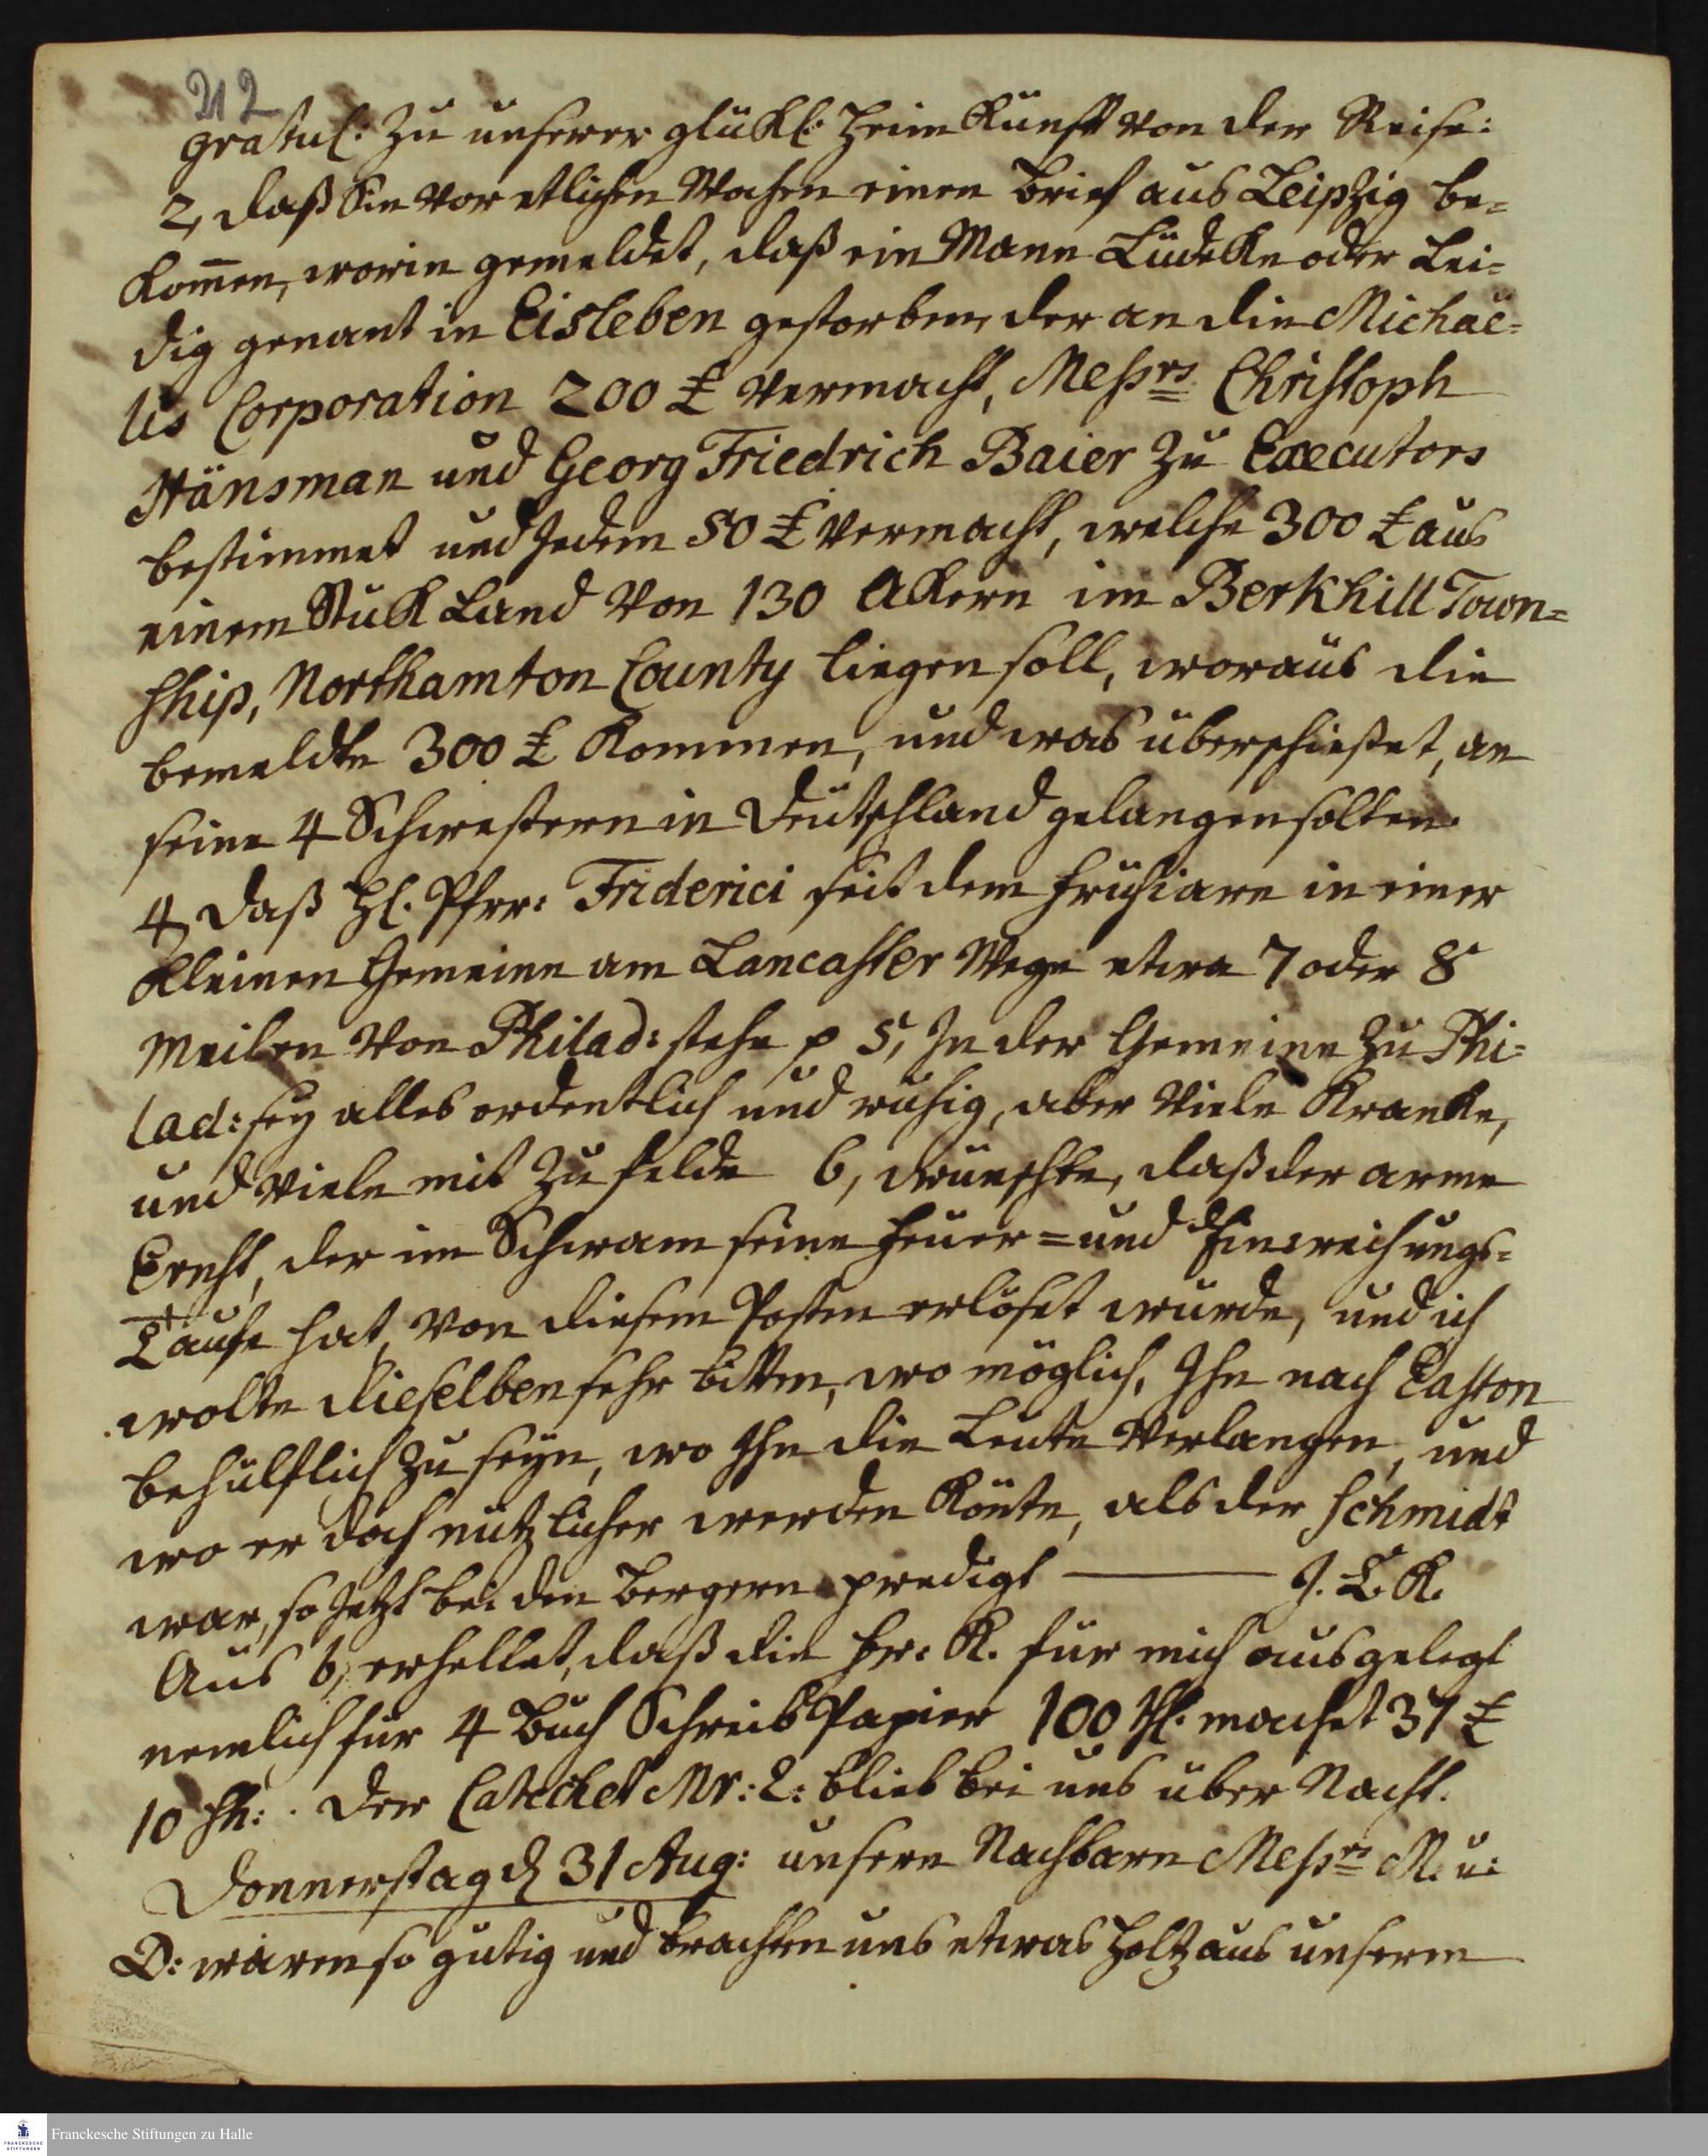 212
gratul: zu unserer glükl: Heimkunft von der Reise:
2, daß Sie vor etlichen Wochen einen Brief aus Leipzig be=
kom̄en, worin gemeldet, daß ein Mann Lüdeke oder Lei=
dig genant in Eisleben gestorben, der an die Michae=
lis Corporation 200 £ vermacht, Messrs Christoph
Hänsman und Georg Friedrich Baier zu Executors
bestimmet und jedem 50 £ vermacht, welche 300 £ aus
einem Stuk Land von 130 Akern im Berkhill Town=
ship, Northamton County liegen soll, woraus die
bemeldte 300 £ kommen, und was überschießet, an
seine 4 Schwestern in Deutschland gelangen solten.
4, Daß H. Pfrr: Friderici seit dem Frühjare in einer
kleinen Gemeine am Lancaster Wege etwa 7 oder 8
Meilen von Philad: stehe p 5, In der Gemeine zu Phi=
lad: sey alles ordentlich und ruhig, aber viele Kranke,
und viele mit zu Felde 6, wünschte, daß der arme
Ernst, der im Schwam seine Feuer= und Einweichungs=
Taufe hat, von diesem Posten erlöset würde, und ich
wolte dieselben sehr bitten, wo möglich, Ihn nach Easton
behülflich zu seyn, wo Ihn die Leute verlangen, und
wo er doch nützlicher werden könte, als der Schmidt
war, so jetzt bei den Bergern predigt — J. L. K.
Aus 6, erhellet, daß die Hr: K. für mich ausgelegt
nemlich für 4 Buch Schreib Papier 100 thl. machet 37 £
10 sh: . Der Catechet Mr: L: blieb bei uns über Nacht.
Donnerstag d 31 Aug: unsere Nachbarn Messrs M. u:
D: waren so gütig und brachten uns etwas Holtz aus unserm
Franckesche Stiftungen zu Halle